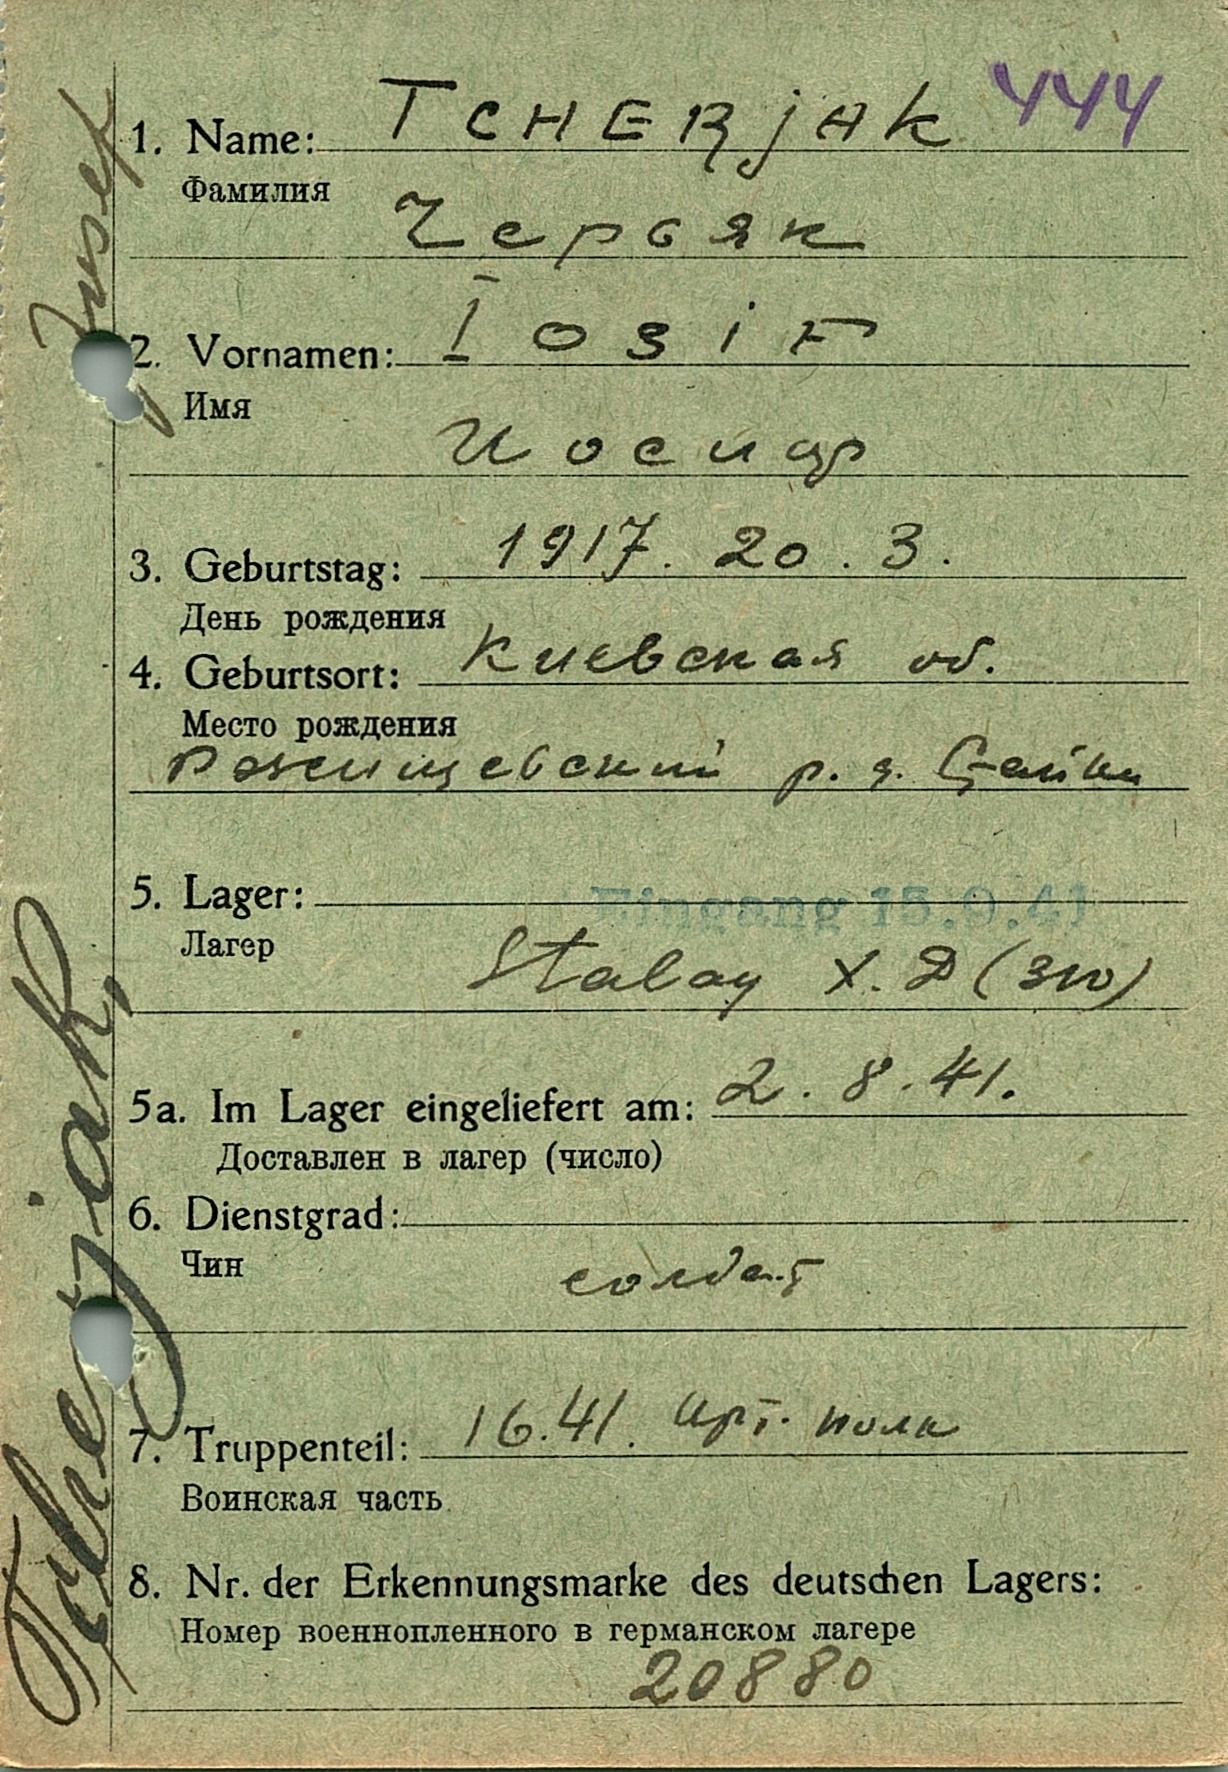 444
1. Name: TCHERjAK
Фамилия
Черьяк
2. Vornamen: IosiF
Имя
Иосиф
3. Geburtstag: 1917. 20. 3.
День рождения
4. Geburtsort: Киевская об.
Место рождения
р.
5. Lager: Eingang 15.9.41
Лагерь
Stalag X. D (310)
5a. Im Lager eingeliefert am: 2. 8. 41.
Доставлен в лагер (число)
6. Dienstgrad:
Чин
солдат
7. Truppenteil: 16.41. арт. полк
Воинская часть
8. Nr. der Erkennungsmarke des deutschen Lagers:
Номер военнопленного в германском лагере
20880